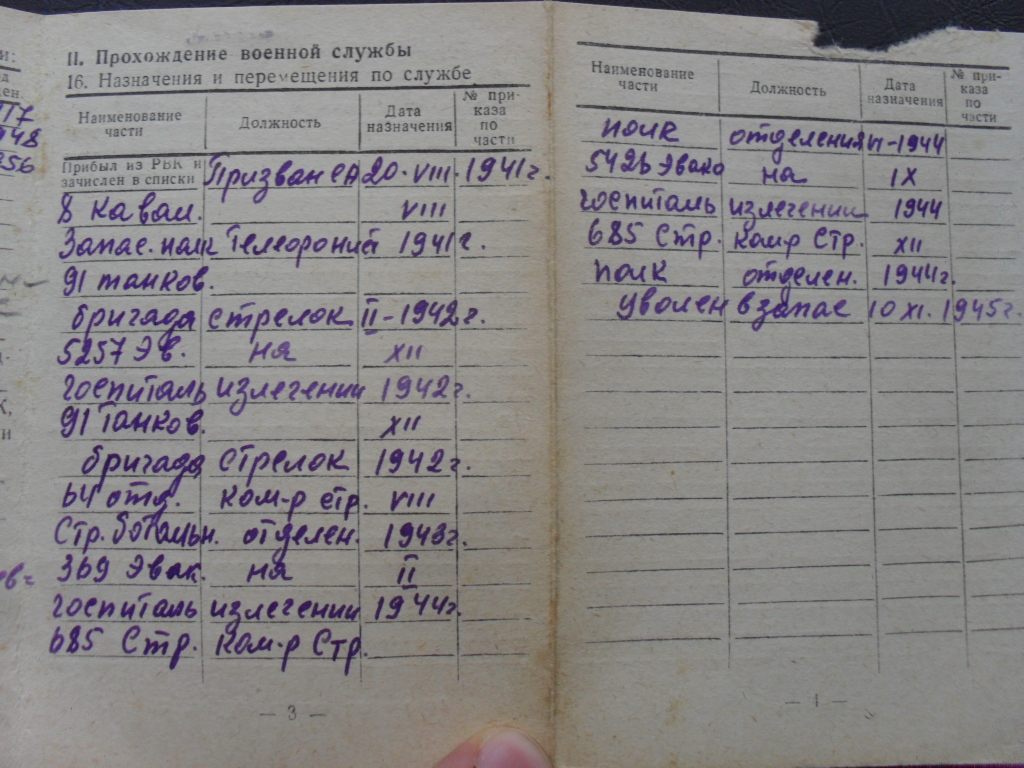 и:
117
48
256
К,
и
II. Прохождение военной службы
16. Назначения и перемещения по службе
Наименование части Должность Дата назначения № приказа по части
Прибыл из РВК и зачислен в списки Призван СА 20. VIII. 1941г.
8 Кавал. VIII
Запас. полк Телефонист 1941г.
91 танков.
бригада стрелок II-1942г.
5257 Эв. на XII
госпиталь излечении 1942г.
91 Танков. XII
бригада стрелок 1942г.
64 отд. ком-р стр. VIII
Стр. батальн. отделен. 1943г.
369 Эвак. на II
госпиталь излечении 1944г.
685 Стр. ком-р Стр.
— 3 —
Наименование части Должность Дата назначения № приказа по части
полк отделения VI-1944
5426 Эвако на IX
госпиталь излечении 1944
685 Стр. ком-р Стр. XII
полк отделен. 1944г.
уволен в запас 10 XI. 1945г.